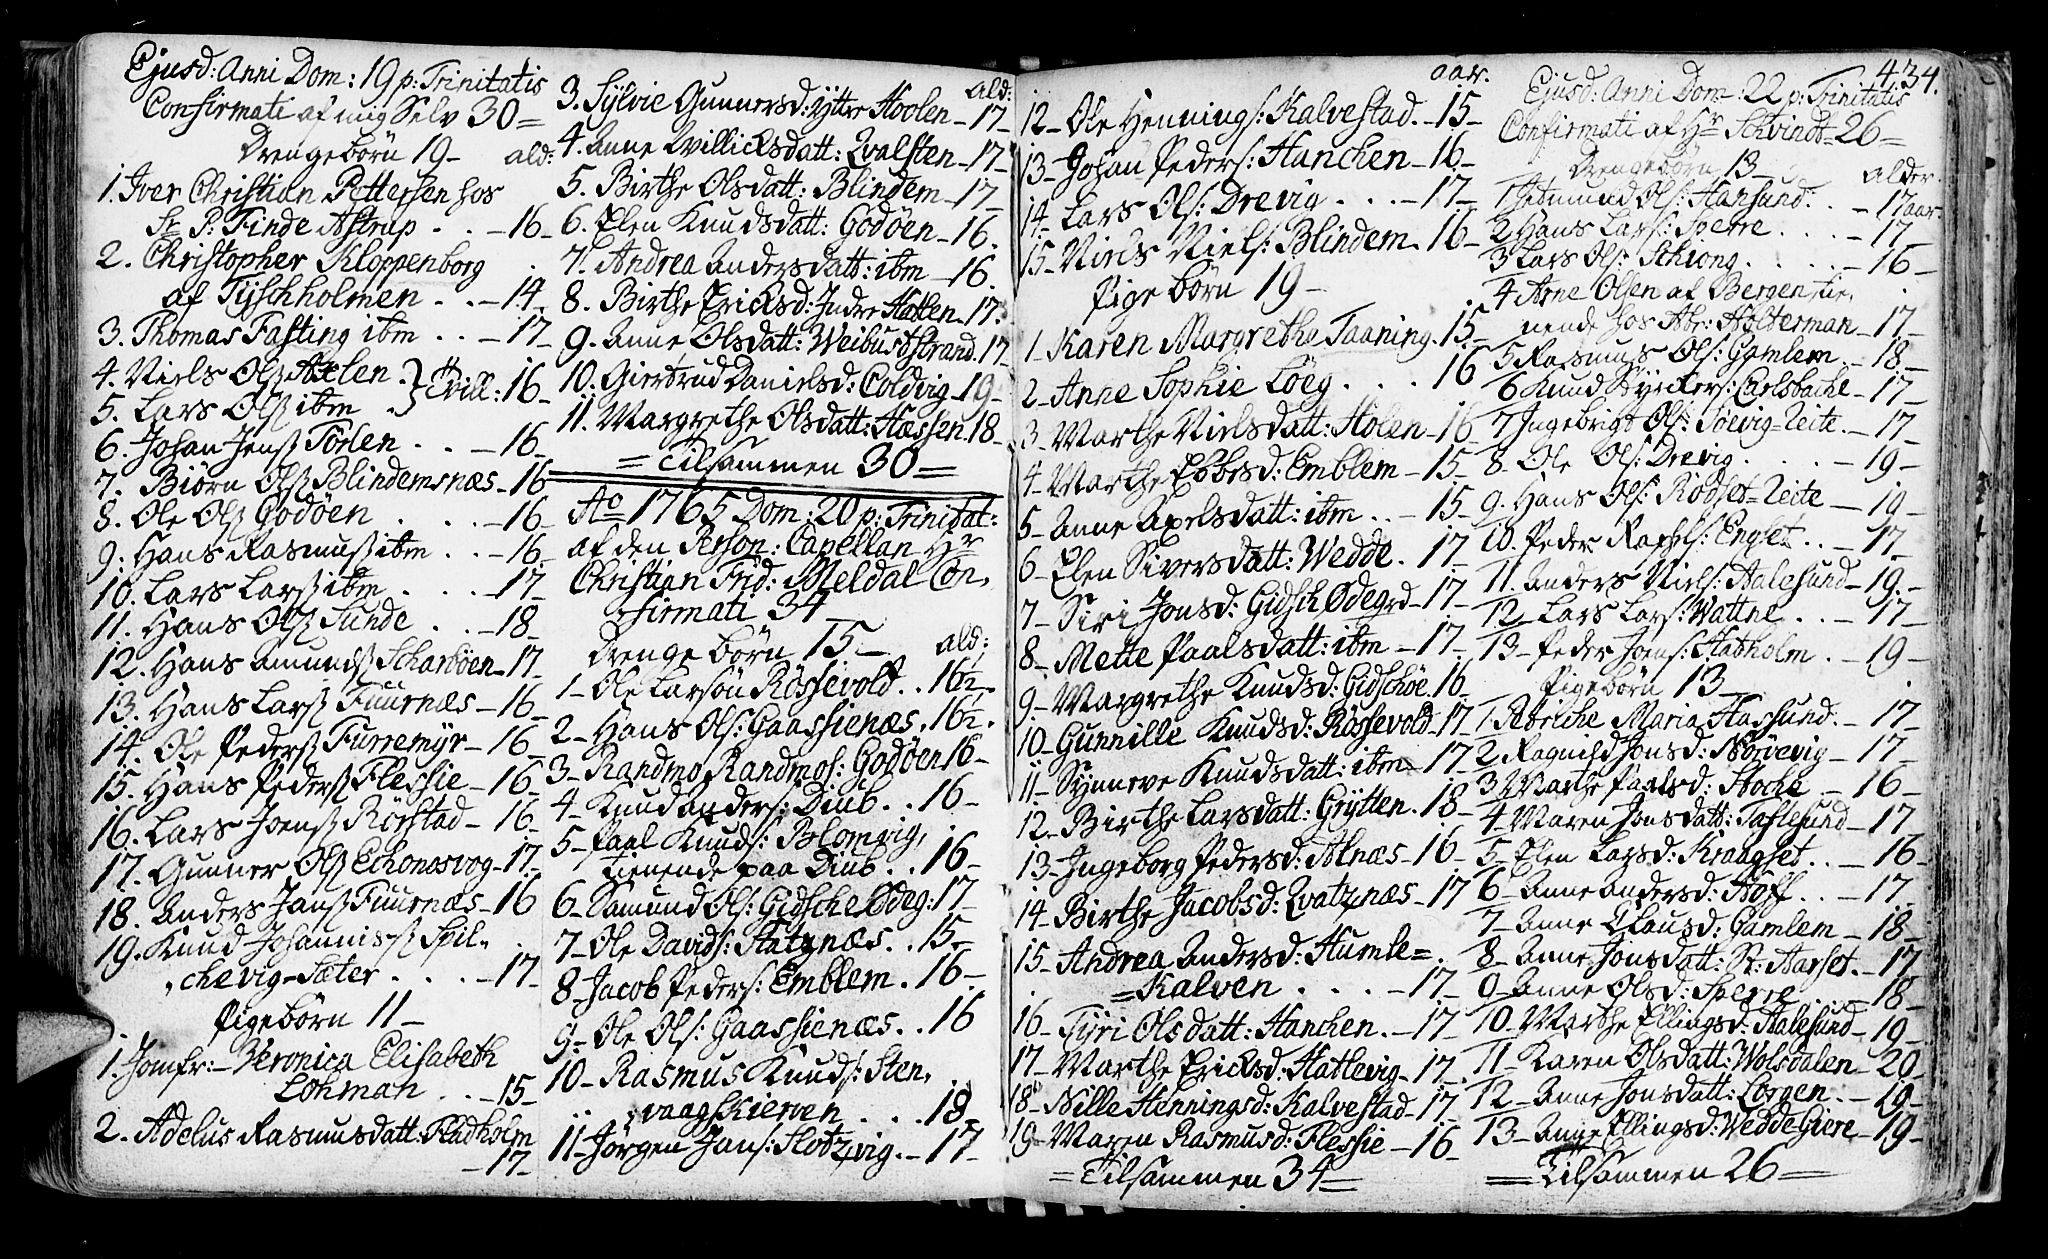 Ejusd: Anni Dom: 19 p: Trinitatis
Confirmati af mig Selv 30 =
Drengebörn 19 - ald:
1. Iver Christian Pettersen hos
Sr P: Finde Astrup . . - 16 -
2. Christopher Kloppenborg
af Tyschholmen . . - 14 -
3. Thomas Fasting ibm . . - 17 -
4. Niels Ols
5. Lars Ols ibm 16 -
6. Johan Jens Törlen . . - 16 -
7. Biörn Ols Blindemsnæs - 16
8. Ole Ols Godöen . . . - 16 -
9: Hans Rasmus ibm . . - 16 -
10. Lars Lars ibm . . . - 17 -
11. Hans Ols Sunde . . - 18 -
12. Hans Amunds Scharböen - 17 -
13. Hans Lars Fuurnæs - 16 -
14. Ole Peders Furremyr - 16 -
15. Hans Peders Flessie - 16 -
16. Lars Joens Rörstad - 16 -
17. Gunner Ols - 17 -
18. Anders Jans Fuurnæs - 16
19. Knud Johannis Spil,
chevig-Sæter . . . - 17 -
Pigebörn 11 -
1. Jomfr: Veronica Elisabeth
Lohman . . - 15 -
2. Adelus Rasmusdatt: Fladholm
- 17 -
ald:
3. Sylvie Gunnersd: Yttre Hoolen - 17 -
4. Anne Willicksdatt: Qvalsten - 17 -
5. Birthe Olsdatt: Blindem - 17 -
6. Elen Knudsdatt: Godöen - 16.
7. Andrea Andersdatt: ibm - 16.
8. Birthe Ericksd: Indre - 17.
9. Anne Olsdatt: Weibuststrand. 17
10. Giertrud Danielsd: Coldvig - 19 -
11. Margrethe Olsdatt: Hæssen. 18 -
= Tilsammen 30 =
Ao 1765 Dom: 20 p: Trinitat:
af den Person: Capellan Hr
Christian Frid: Meldal Con,
firmati 34
Drengebörn 15 - ald:
1 - Ole Larsön Rössevold . . 16½ -
2 - Hans Ols: Gaassienæs. 16½.
3 - Randmo Randmos: Godöen 16 -
4 - Knud Anders: Diub . . 16 -
5 - Paal Knuds: Blomvig,
tienende paa Diub . . 16 -
6 - Samund Ols: Gidsche Ödeg: 17 -
7 - Ole Davids: Slatznæs . . 15 -
8 - Jacob Peders: Emblem . 16 -
9 - Ole Ols: Gaassienæs . . 16
10 - Rasmus Knuds: Sten,
vaagskierven . . . 18,
11 - Jörgen Jans: Slotzvig. - 17 -
aar.
12 - Ole Hennings: Kalvestad. - 15 -
13 - Johan Peders: Hanchen - 16 -
14 - Lars Ols: Drevig . . . - 17 -
15 - Niels Niels: Blindem . 16 -
Pigebörn 19 -
1 - Karen Margrethe Taaning. 15 -
2 - Anne Sophie Löeg . . . 16
3 - Marthe Nielsdatt: Holen - 16 -
4 - Marthe Ebbesd: Emblem - 15 -
5 - Anne Axelsdatt: ibm . . - 15 -
6 - Elen Siversdatt: Wedde . 17 -
7 - Siri Jonsd: Gidsch Ödegrd - 17 -
8 - Mette Paalsdatt: ibm - 17 -
9 - Margrethe Knudsd: Gidschöe. 16 -
10 - Gunnille Knudsd: Rössevold - 17 -
11 - Synneve Knudsdatt: ibm - 17 -
12 - Birthe Larsdatt: Grytten. 18 -
13 - Ingeborg Pedersd: Alnæs - 16 -
14 - Birthe Jacobsd: Qvatznæs - 17
15 - Andrea Andersd: Humle =
= Kalven . . . - 17 -
16 - Tyri Olsdatt: Hanchen. - 17 -
17 - Marthe Ericksd: Hatlevig - 17 -
18 - Nille Henningsd: Kalvestad - 17 -
19 - Maren Rasmusd: Flessie - 16 -
= Tilsammen 34 =
434.
Ejusd: Anni Dom: 22 p: Trinitatis
Confirmati af Hr Schvindt 26 =
Drengebörn 13 - alder.
1 Ols: Hansund: . - 17 aar.
2 Hans Lars: Sperre . . . - 17 -
3 Lars Ols: Schiong . . . . - 16 -
4 Arne Olsen af Bergen, tie,
nende hos Abr: Holterman - 17 -
5 Rasmus Ols: Gamlem . - 18 -
6 Knud Styrckers: Carlsbache - 17 -
7 Ingebrigt Ols: Söevig-Leite . - 17 -
8. Ole Ols: Drevig . . . . - 19 -
9. Hans Ols: Rödset-Leite - 19 -
10. Peder Raphls: Engset . . - 17 -
11. Anders Niels: Aalesund - 19 -
12 - Lars Lars: Wattne . . - 17 -
13 - Peder Joens: Hatholm . - 19 -
Pigebörn 13 -
1 Maria Hassund. - 17 -
2 Ragnild Jonsd: Nörvevig - 17 -
3 Marthe Paalsd: - 16 -
4 - Maren Jonsdatt: Taftesund - 17 -
5 - Elen Larsd: Kraagset . . - 16 -
6 - Anne Andersd: Hoff . . - 17 -
7 - Anne Clausd: Gamlem - 18 -
8 - Anne Jonsdatt: St: Aarset. - 17
9 - Anne Olsd: Sperre . . . - 18 -
10 - Marthe Ellingsd. Aalesund - 19 -
11 - Karen Olsdatt: Wolsdalen - 20 -
12 - Anne Jonsdatt: Lorgen . . - 19 -
13 - Anne Ellingsd: Wedde Giere - 19 -
= Tilsammen 26 =